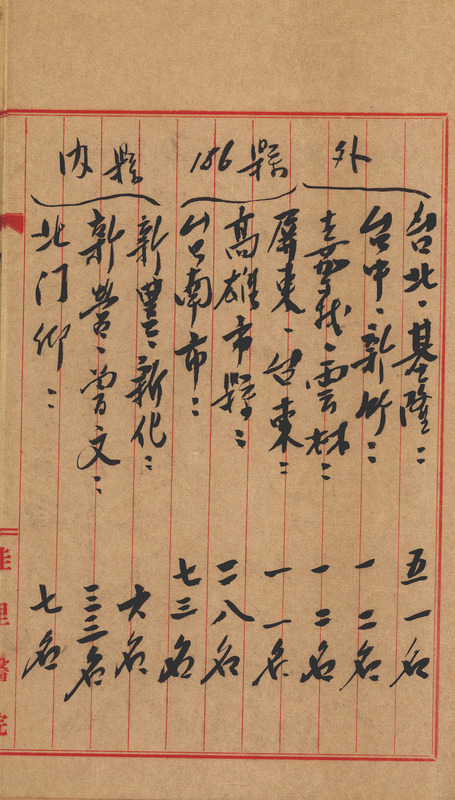 外縣 186
台北、基隆： 五一名
台中、新竹： 一二名
嘉義、雲林： 一二名
屏東、台東： 一一名
高雄市縣： 二八名
台南市： 七三名
縣內
新豐、新化： 六名
新營、曾文： 三三名
北门： 七名
佳里醫院